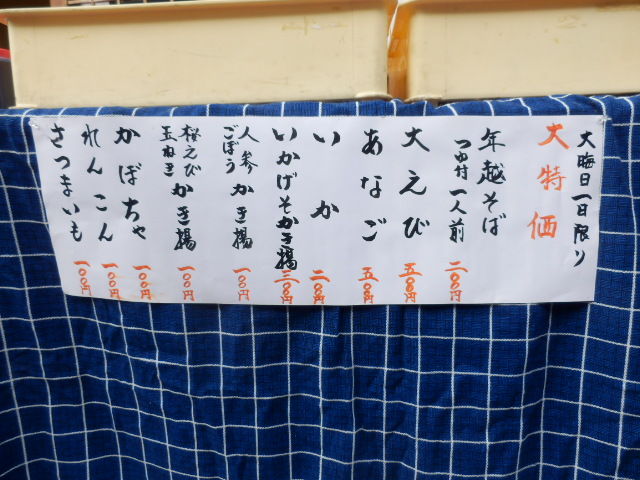 大晦日一日限り
大特価
年越そば
つゆ付一人前
二〇〇円
大えび
五〇〇円
あなご
五〇〇円
いか
二〇〇円
いかげそかき揚
三〇〇円
人参
ごぼう
かき揚
一〇〇円
桜えび
玉ねぎ
かき揚
一〇〇円
かぼちゃ
一〇〇円
れんこん
一〇〇円
さつまいも
一〇〇円